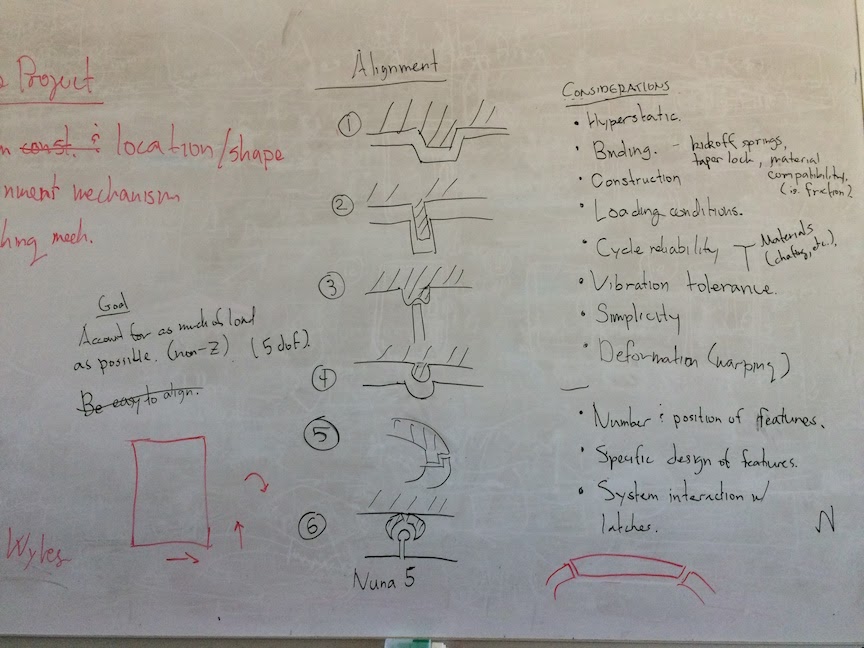 Project
const. & location/shape
nment mechanism
hing mech.
Goal
Account for as much of load
as possible. (non-Z) (5 dof).
Be easy to align.
Wyles
Alignment
1
2
3
4
5
6
Nuna 5
CONSIDERATIONS
• Hyperstatic.
• Bnding. - kickoff springs,
taper lock, material
compatibility.
(i.e. friction)
• Construction
• Loading conditions.
• Cycle reliability
Materials
(chafing, etc.).
• Vibration tolerance.
• Simplicity
• Deformation (warping)
• Number & position of features.
• Specific design of features.
• System interaction w/
latches.
N